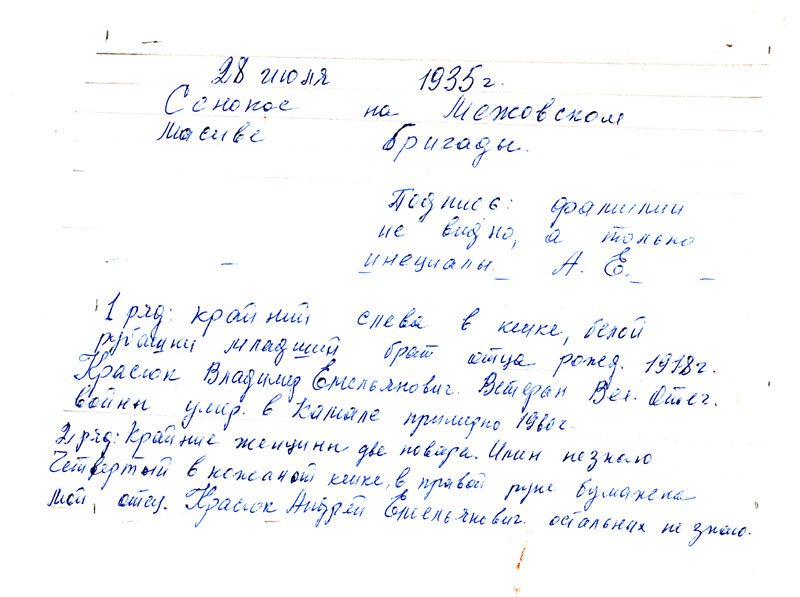 28 июля 1935 г.
Сенокос на Межовском
масиве бригады.
Подпись: фамилии
не видно, а только
инециалы. А. Е.
1 ряд: крайний слева в кепке, белой
рубашки младший брат отца рожд. 1918 г.
Красюк Владимир Емельянович. Ветеран Вел. Отеч.
войны умир. в Камале примирно 1980 г.
2 ряд: Крайние женщины две повара. Имен не знаю
Четвертый в кожаной кепке, в правой руке бумажка
мой отец. Красюк Андрей Емельянович. остальных не знаю.